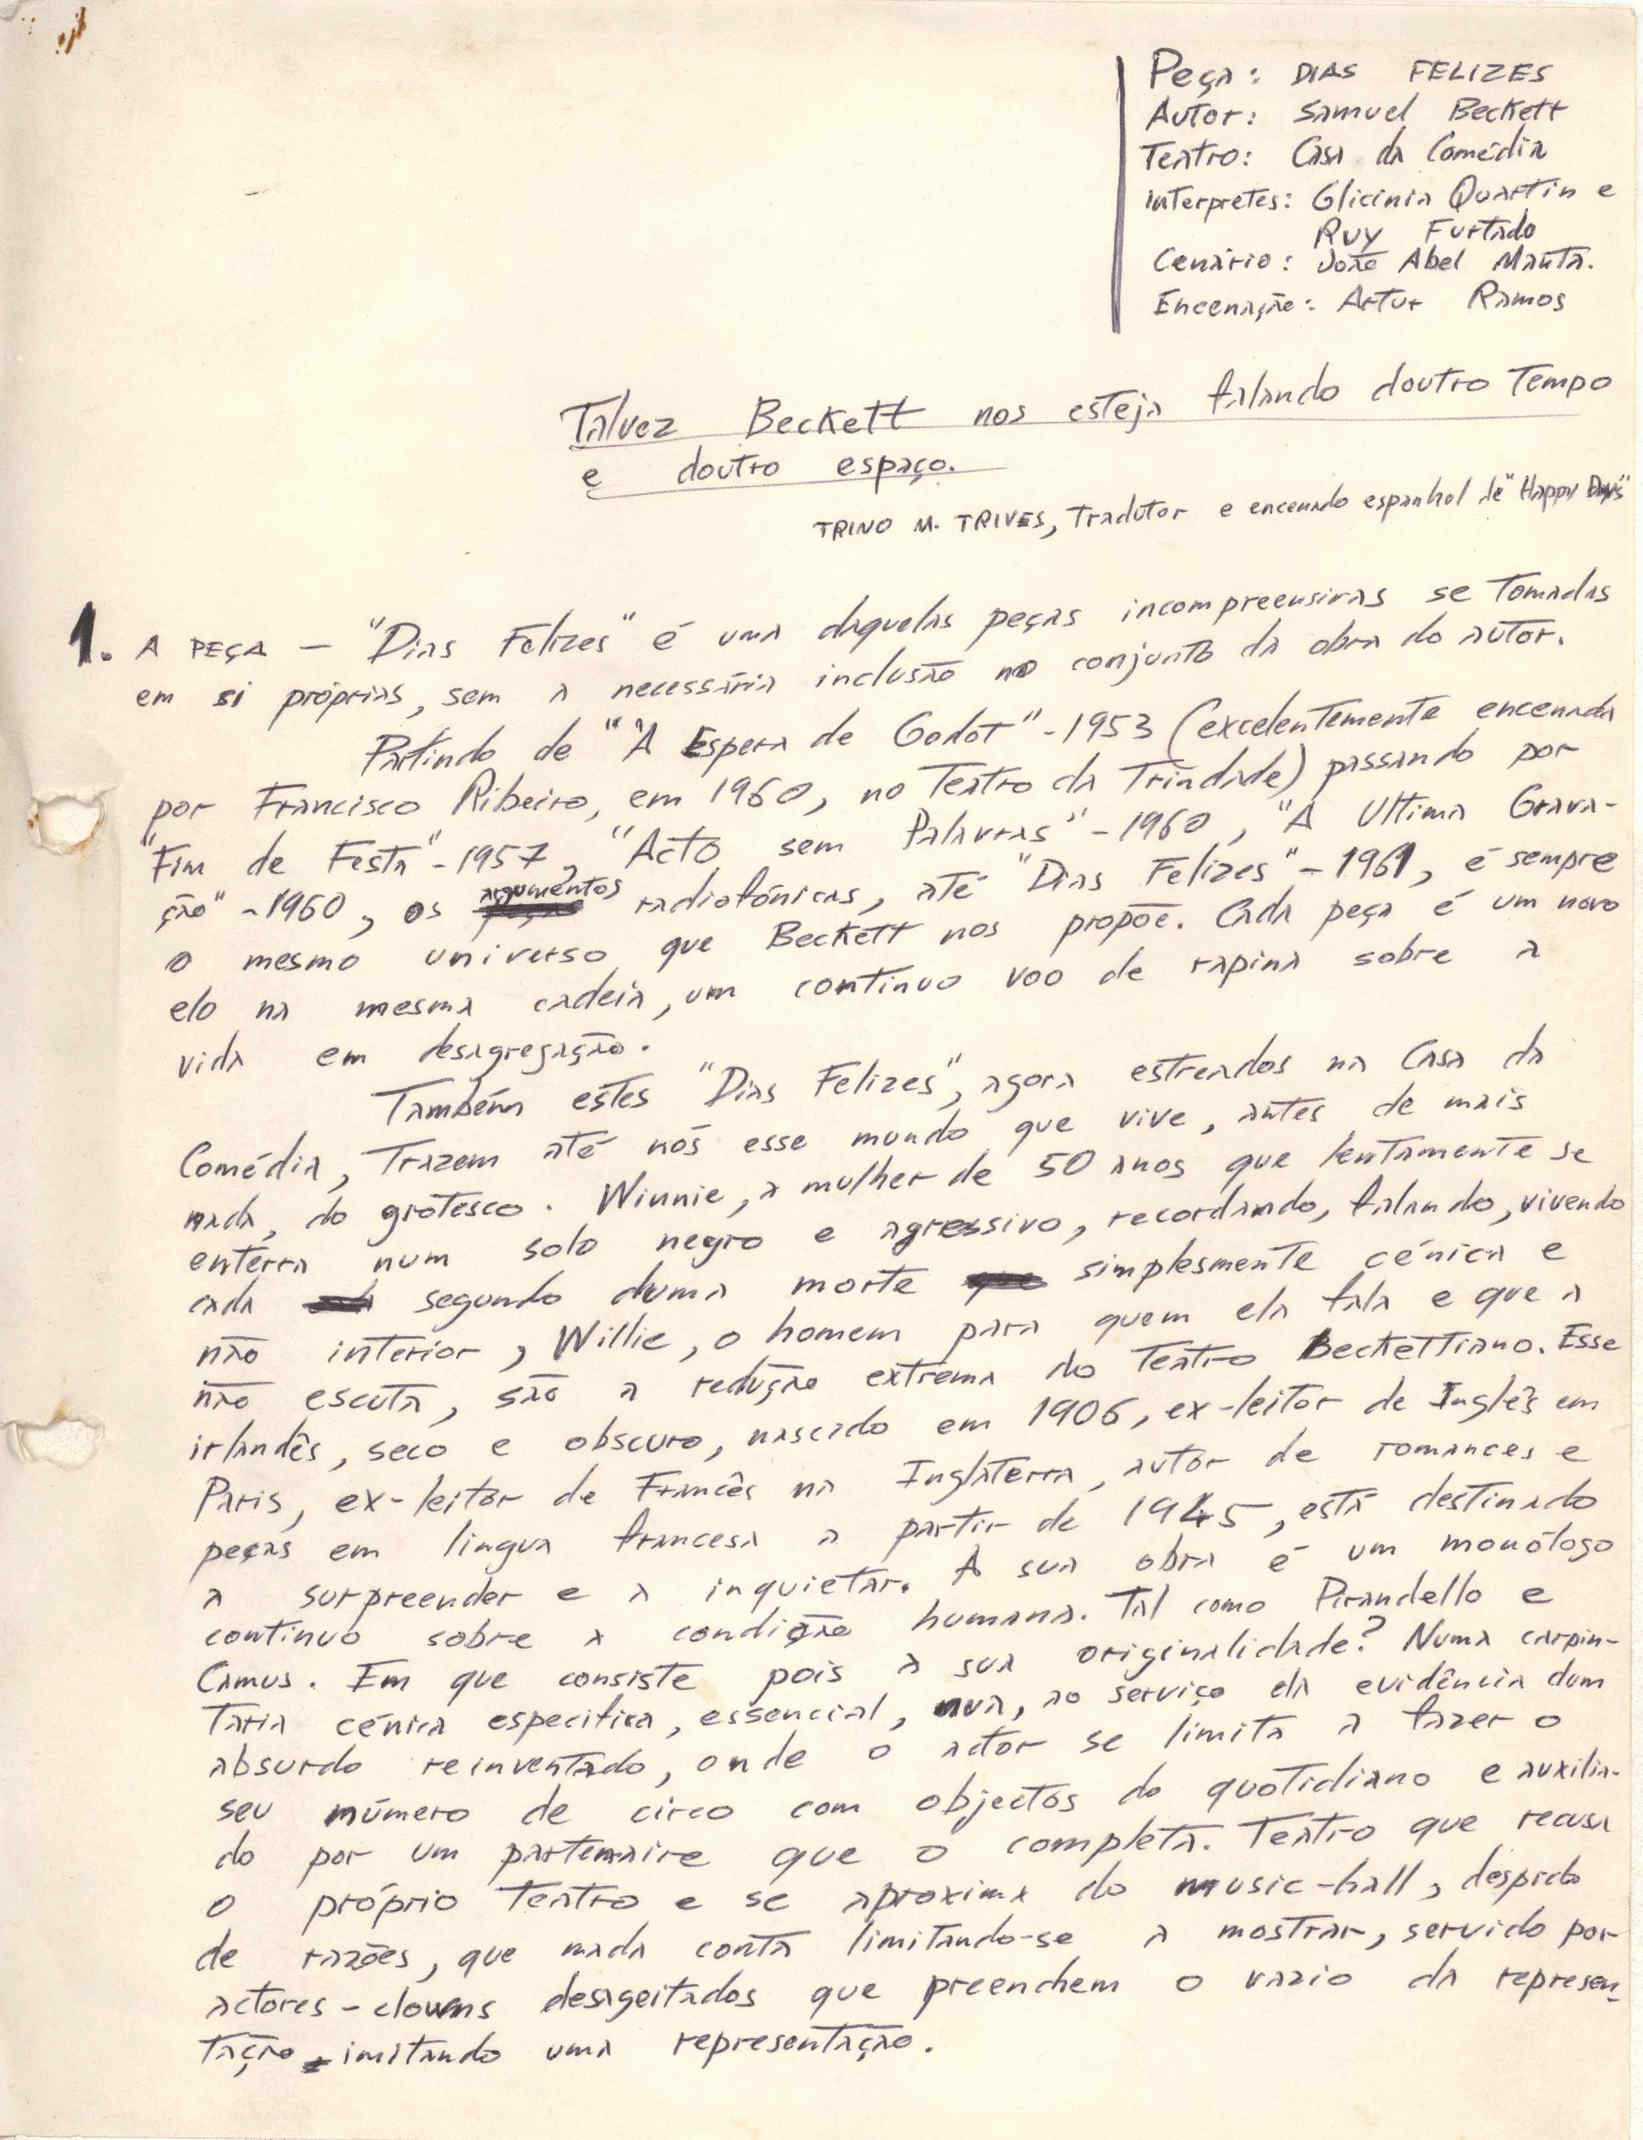 Peça: DIAS FELIZES
Autor: Samuel Beckett
Teatro: Casa da Comédia
Interpretes: Glicinia Quartin e
Ruy Furtado
Cenário: João Abel Manta.
Encenação: Artur Ramos
Talvez Beckett nos esteja falando doutro Tempo
e doutro espaço.
TRINO M. TRIVES, Tradutor e encenado espanhol de "Happy Days"
1. A PEÇA — "Dias Felizes" é uma daquelas peças incompreensivas se Tomadas
em si próprias, sem a necessária inclusão no conjunto da obra do autor.
Partindo de "À Espera de Godot" - 1953 (excelentemente encenada
por Francisco Ribeiro, em 1960, no Teatro da Trindade) passando por
"Fim de Festa" - 1957, "Acto sem Palavras" - 1960, "A Ultima Grava-
ção" - 1960, os argumentos radiofónicas, até "Dias Felizes" - 1961, é sempre
o mesmo universo que Beckett nos propõe. Cada peça é um novo
elo na mesma cadeia, um continuo voo de rapina sobre a
vida em desagregação.
Também estes "Dias Felizes", agora estreados na Casa da
Comédia, Trazem até nós esse mundo que vive, antes de mais
nada, do grotesco. Winnie, a mulher de 50 anos que lentamente se
enterra num solo negro e agressivo, recordando, falando, vivendo
cada segundo duma morte simplesmente cénica e
não interior, Willie, o homem para quem ela fala e que a
não escuta, são a redução extrema do Teatro Beckettiano. Esse
irlandês, seco e obscuro, nascido em 1906, ex-leitor de Inglês em
Paris, ex-leitor de Francês na Inglaterra, autor de romances e
peças em lingua francesa a partir de 1945, está destinado
a surpreender e a inquietar. A sua obra é um monólogo
continuo sobre a condição humana. Tal como Pirandello e
Camus. Em que consiste pois a sua originalidade? Numa carpin-
Taria cénica especifica, essencial, nua, ao serviço da evidência dum
absurdo reinventado, onde o actor se limita a fazer o
seu número de circo com objectos do quotidiano e auxilia-
do por um partenaire que o completa. Teatro que recusa
o próprio Teatro e se aproxima do music-hall, despido
de razões, que nada conta limitando-se a mostrar, servido por
actores-clowns desageitados que preenchem o vazio da represen-
Tação imitando uma representação.